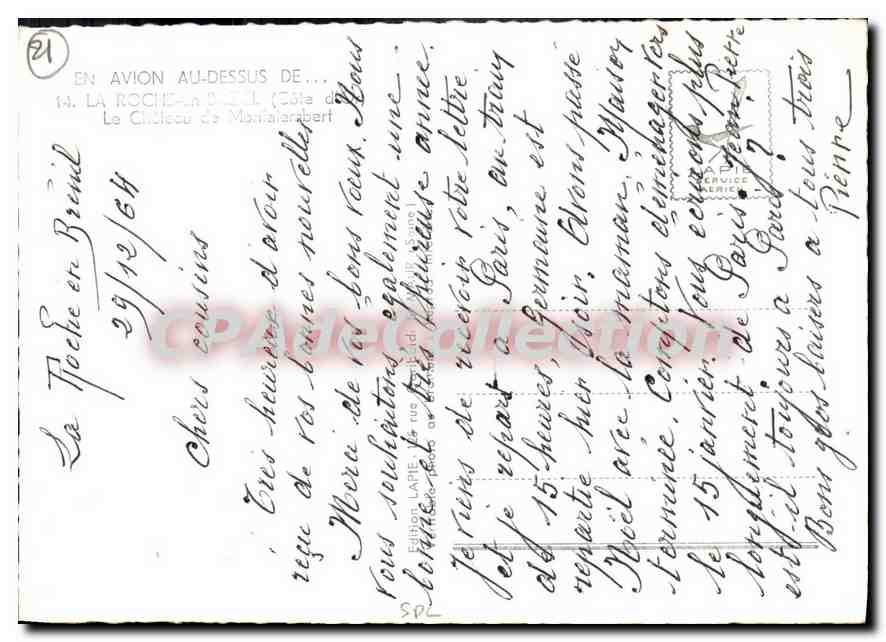 21
EN AVION AU-DESSUS DE...
14. LA ROCHE-en-BRENIL (Côte d
Le Château de Montalembert
La Roche en Brénil
29/12/64
Chers cousins
Très heureux d'avoir
reçu de vos bonnes nouvelles
Merci de vos bons vœux. Nous
vous souhaitons également une
bonne et très heureuse année.
Je viens de recevoir votre lettre
et je repars à Paris, au train
de 15 heures, Germaine est
repartie hier soir. Avons passé
Noël avec la maman. Maison
terminée. Comptons déménager vers
le 15 janvier. Vous écrirons plus
longuement de Paris. Jean-Pierre
est-il toujours à Paris?
Bons gros baisers à tous trois
Pierre
Pierre
Edition LAPIE, rue
Véritable photo au
LAPIE
SERVICE
AERIEN
CPAdeCollection
SPL